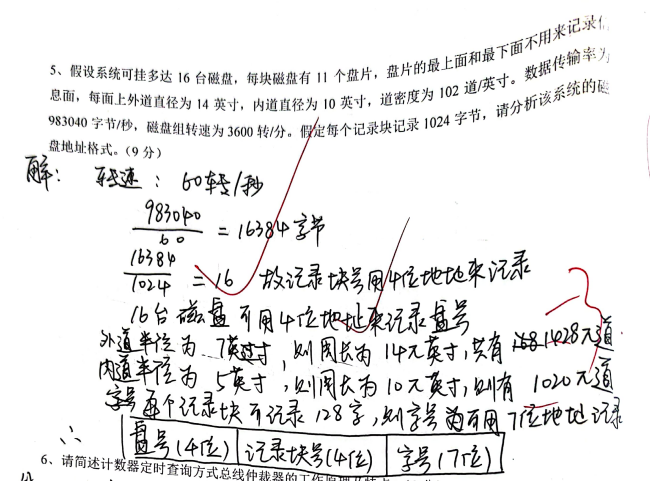 5、假设系统可挂多达 16 台磁盘，每块磁盘有 11 个盘片，盘片的最上面和最下面不用来记录信
息面，每面上外道直径为 14 英寸，内道直径为 10 英寸，道密度为 102 道/英寸。数据传输率为
983040 字节/秒，磁盘组转速为 3600 转/分。假定每个记录块记录 1024 字节，请分析该系统的磁
盘地址格式。（9 分）
解： 转速：60转/秒
983040/60 = 16384字节
16384/1024 = 16 故记录块号用4位地址来记录
16台磁盘可用4位地址来记录盘号
外道半位为 7英寸，则周长为 14π英寸，共有 1428π道
内道半位为 5英寸，则周长为 10π英寸，则有 1020π道
字号 每个记录块可记录128字，则字号为可用7位地址记录
∴ 盘号(4位) 记录块号(4位) 字号(7位)
-3
6、请简述计数器定时查询方式总线仲裁器的工作原理及特点